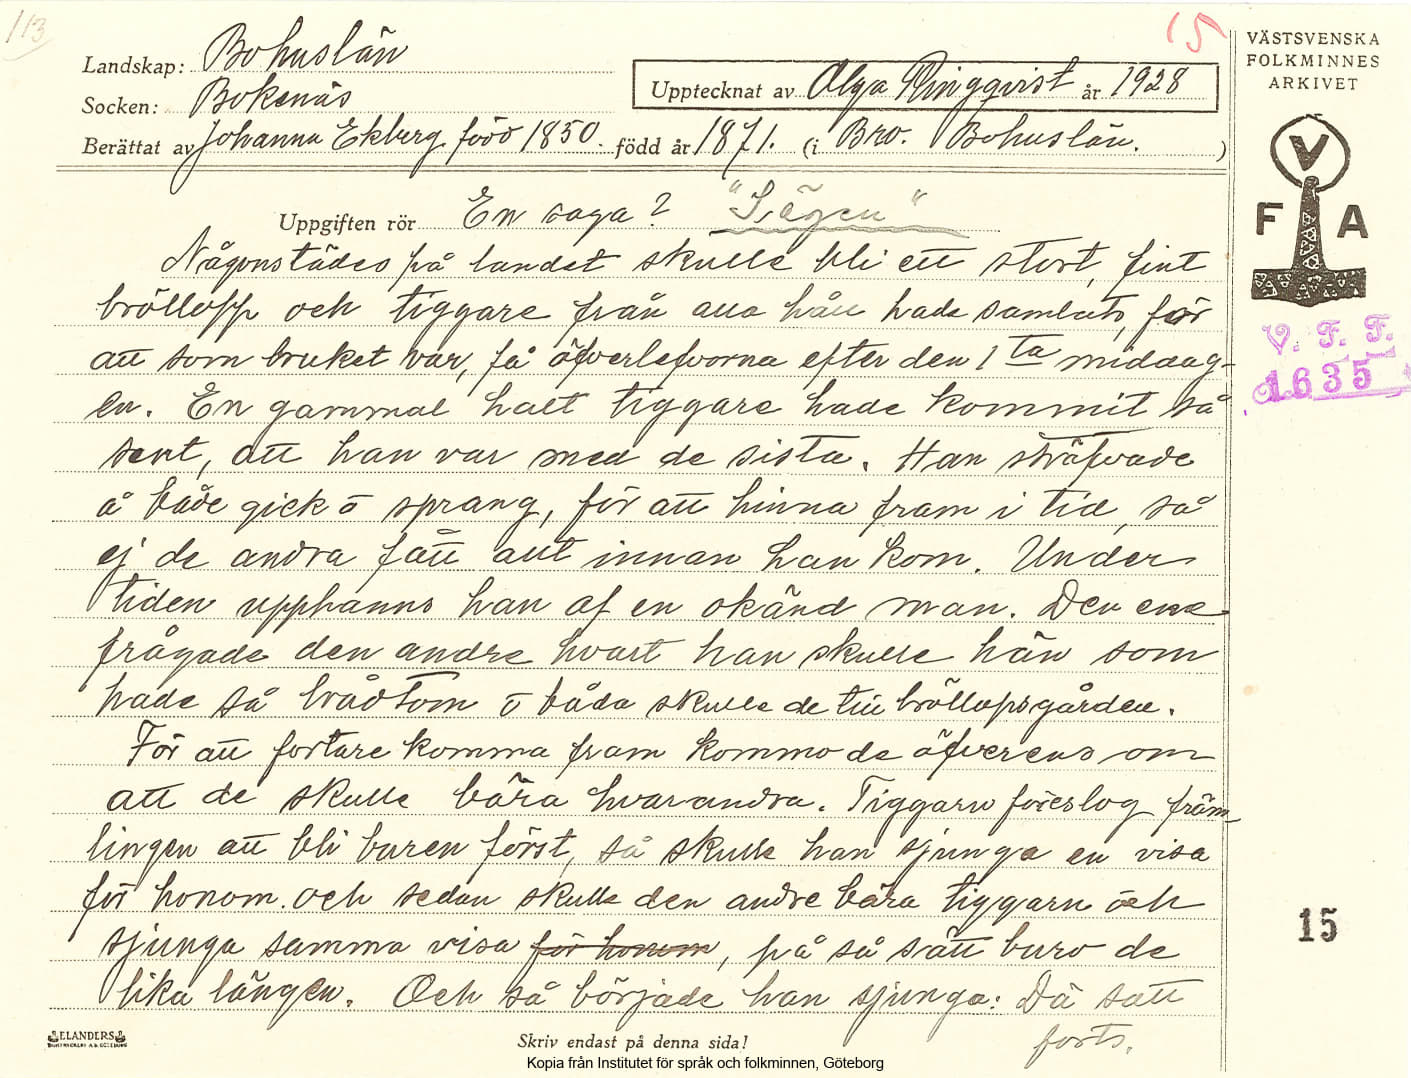 113
15
Landskap: Bohuslän
Socken: Bokenäs
Upptecknat av Olga Ringqvist år 1928
Berättat av Johanna Ekberg född 1850. född år 1871. (i Bro. Bohuslän. )
VÄSTSVENSKA
FOLKMINNES
ARKIVET
V
F A
V. F. F.
1635
Uppgiften rör En saga? "Sägen"
Någonstädes på landet skulle bli ett stort, fint
bröllopp och tiggare från alla håll hade samlats, för
att som bruket var, få öfverlefvorna efter den 1ta middag-
en. En gammal halt tiggare hade kommit så
sent, att han var med de sista. Han sträfvade
å både gick o sprang, för att hinna fram i tid, så
ej de andra fått allt innan han kom. Under
tiden upphanns han af en okänd man. Den ene
frågade den andre hvart han skulle hän som
hade så bråttom o båda skulle de till bröllopsgården.
För att fortare komma fram kommo de öfverens om
att de skulle bära hvarandra. Tiggarn föreslog främ-
lingen att bli buren först, så skulle han sjunga en visa
för honom. och sedan skulle den andre bära tiggarn och
sjunga samma visa för honom, på så sätt buro de
lika längen. Och så började han sjunga: Då satt
forts.
15
ELANDERS
Skriv endast på denna sida!
Kopia från Institutet för språk och folkminnen, Göteborg